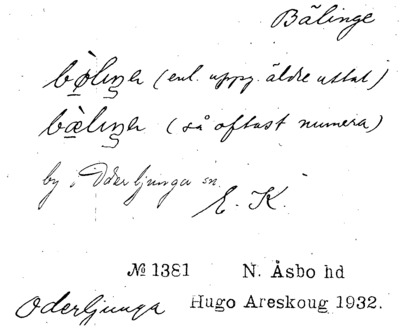 Bälinge
bø̀lıŋa (enl. uppg. äldre uttal)
bæ̀lıŋa (så oftast numera)
by i Oderljunga sn.
E. K.
№ 1381 N. Åsbo hd
Oderljunga Hugo Areskoug 1932.